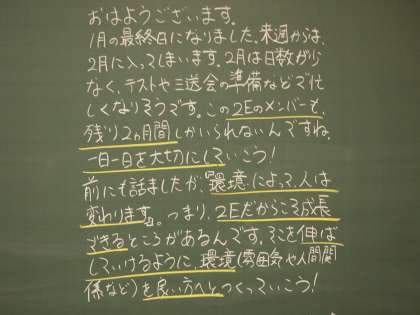 おはようございます。
1月の最終日になりました。来週からは、
2月に入ってしまいます。2月は日数が少
なく、テストや三送会の準備などで忙
しくなりそうです。この2Eのメンバーも、
残り2ヵ月間しかいられないんですね。
一日一日を大切にしていこう!
前にも話ましたが、『環境によって、人は
変わります』。つまり、2Eだからこそ成長
できるところがあるんです。そこを伸ば
していけるように、環境(雰囲気や人間関
係など)を良い方へとつくっていこう!